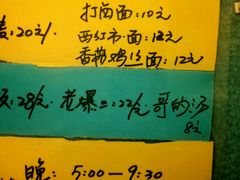 打卤面:10元
西红市面:12元
:20元/
香菇鸡丝面:12元
:28/元·老爆三:22/元·哥的汤
8元
晚:5:00—9:30